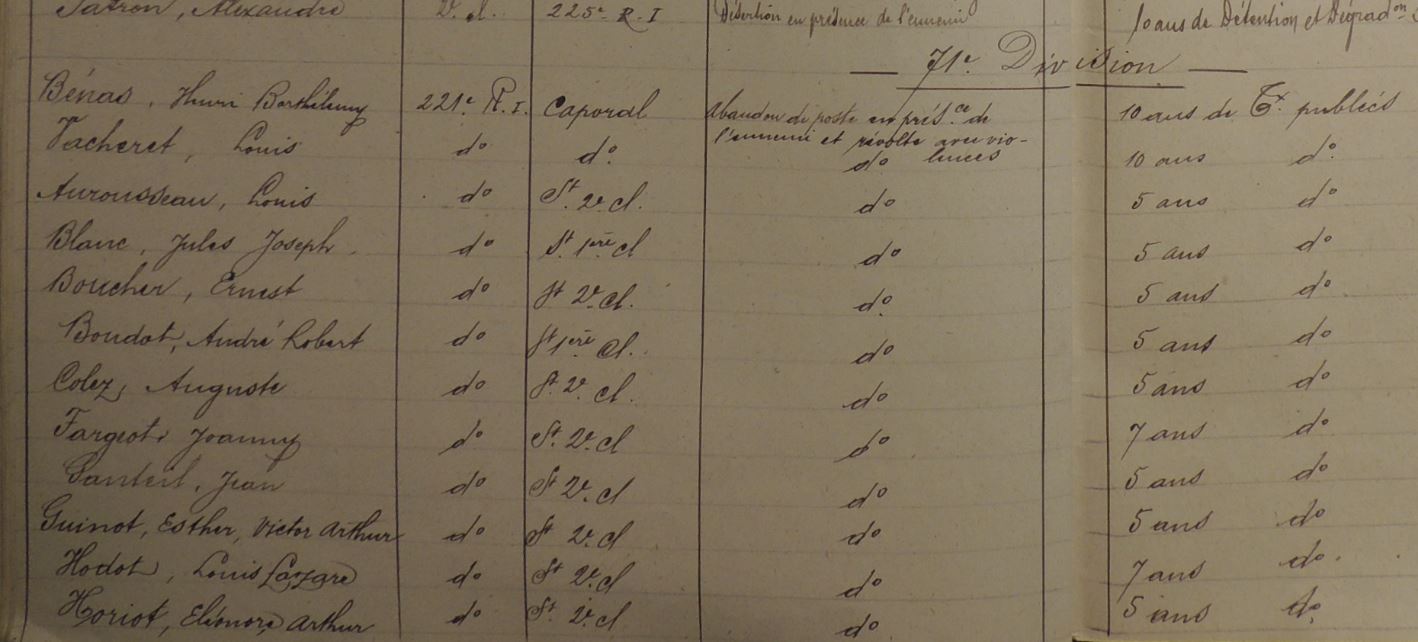 Patron, Alexandre 2e cl. 225e R.I Désertion en présence de l'ennemi 10 ans de Détention et Dégradon
71e Division
Bénas, Henri Barthélemy 221e R.I. Caporal Abandon de poste en présce de 10 ans de Tx publics
l'ennemi et révolte avec vio-
lences
Vacheret, Louis do do do 10 ans do
Aurousseau, Louis do St 2e cl. do 5 ans do
Blanc, Jules Joseph do St 1ère cl do 5 ans do
Boucher, Ernest do St 2e cl. do 5 ans do
Boudot, André Robert do St 1ère cl. do 5 ans do
Colez, Auguste do St 2e cl. do 5 ans do
Fargeot, Joanny do St 2e cl do 7 ans do
Jean do St 2e cl do 5 ans do
Guinot, Esther, Victor Arthur do St 2e cl do 5 ans do
Hodot, Louis Lazare do St 2e cl do 7 ans do
Horiot, Eléonore, Arthur do St 2e cl do 5 ans do